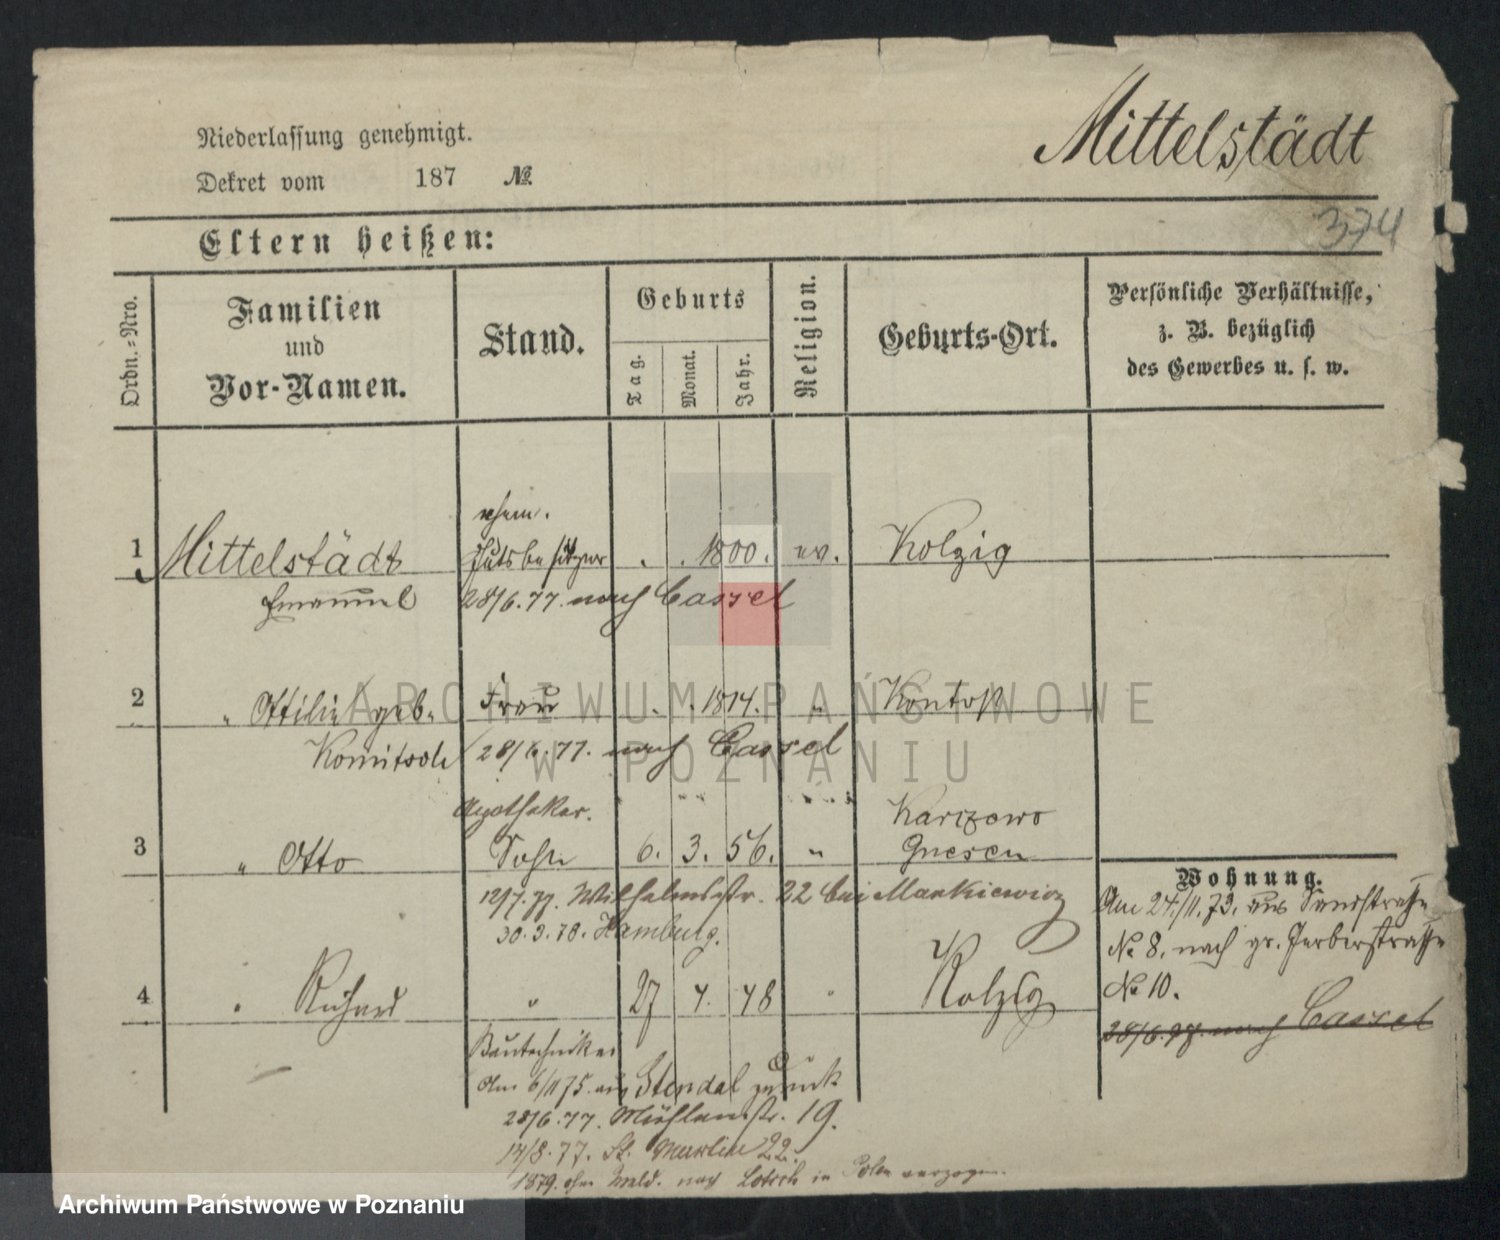 Mittelstädt
Niederlassung genehmigt.
Dekret vom 187 №
374
Eltern heißen:
Ordn.-Nro.
Familien
und
Vor-Namen.
Stand.
Geburts
Tag.
Monat.
Jahr.
Religion.
Geburts-Ort.
Persönliche Verhältnisse,
z. B. bezüglich
des Gewerbes u. s. w.
1 Mittelstädt Gutsbesitzer . . 1800. ev. Kolzig
Emanuel 28/6.77. nach Cassel
2 " Ottilie geb. Frau . . 1814. "
28/6.77. nach Cassel
Apotheker.
3 " Otto Sohn 6. 3. 56. " Karczewo
Gnesen
12/7.77. Wilhelmstr. 22 bei Mankiewicz
30.3.78. Hamburg.
4 " Richard " 27 4. 48 " Kolzig
Bautechniker
Am 6/11 75. aus Stendal zurück
28/6.77. Mühlenstr. 19.
14/8.77. St. Martin 22.
1879. ohne Meld. nach in Polen verzogen.
Wohnung.
Am 24/11.73. aus Sandstraße
№ 8. nach gr. Gerberstraße
№ 10.
28/6.77. nach Cassel
ARCHIWUM PAŃSTWOWE
W POZNANIU
Archiwum Państwowe w Poznaniu